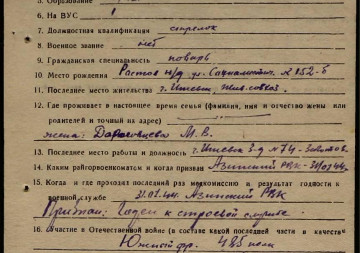 5. Образование
6. На ВУС 1
7. Должностная квалификация стрелок
8. Военное звание нет
9. Гражданская специальность повар
10. Место рождения Ростов н/д ул. Социалистич. № 152-б
11. Последнее место жительства г. Ижевск,
12. Где проживает в настоящее время семья (фамилия, имя и отчество жены или
родителей и точный на адрес)
жена: М. В.
13. Последнее место работы и должность г. Ижевск з-д № 74
14. Каким райгорвоенкоматом и когда призван Азинский РВК
15. Когда и где проходил последний раз медкомиссию и результат годности к
военной службе Азинский РВК
Признан: Годен к строевой службе.
16. Участие в Отечественной войне (в составе какой последней части и качестве
Южный фр. 485 полк